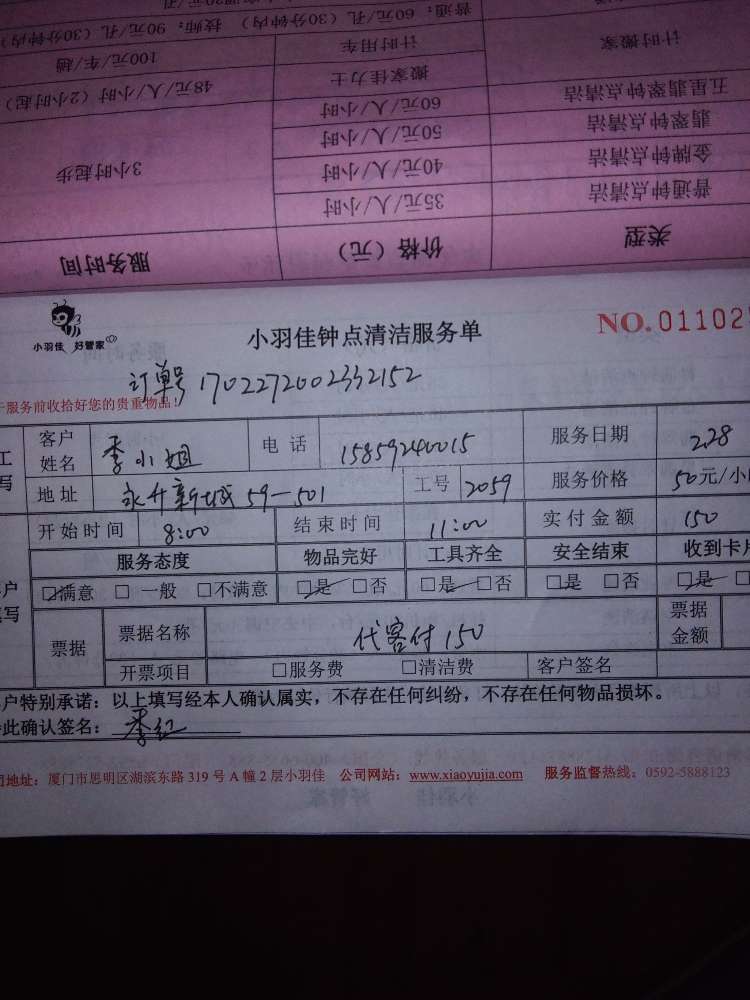 普通：60元/孔（30分钟内） 技师：90元/孔（30分钟内）
计时搬家 计时用车 100元/车/趟
搬家佳力士 48元/人/小时（2小时起）
五星翡翠钟点清洁 60元/人/小时
翡翠钟点清洁 50元/人/小时
金牌钟点清洁 40元/人/小时 3小时起步
普通钟点清洁 35元/人/小时
类型 价格（元） 服务时间
小羽佳 好管家
小羽佳钟点清洁服务单
NO. 01102
订单号 1702272002332152
于服务前收拾好您的贵重物品！
客户姓名 李小姐 电话 15859240015 服务日期 2.28
地址 永升新城59-501 工号 2059 服务价格 50元/小
开始时间 8:00 结束时间 11:00 实付金额 150
服务态度 物品完好 工具齐全 安全结束 收到卡片
☑满意 □一般 □不满意 ☑是 □否 ☑是 □否 ☑是 □否 ☑是 □
票据 票据名称 代客付150 票据金额
开票项目 □服务费 □清洁费 客户签名
户特别承诺：以上填写经本人确认属实，不存在任何纠纷，不存在任何物品损坏。
此确认签名：李红
司地址：厦门市思明区湖滨东路319号A幢2层小羽佳 公司网站：www.xiaoyujia.com 服务监督热线：0592-5888123